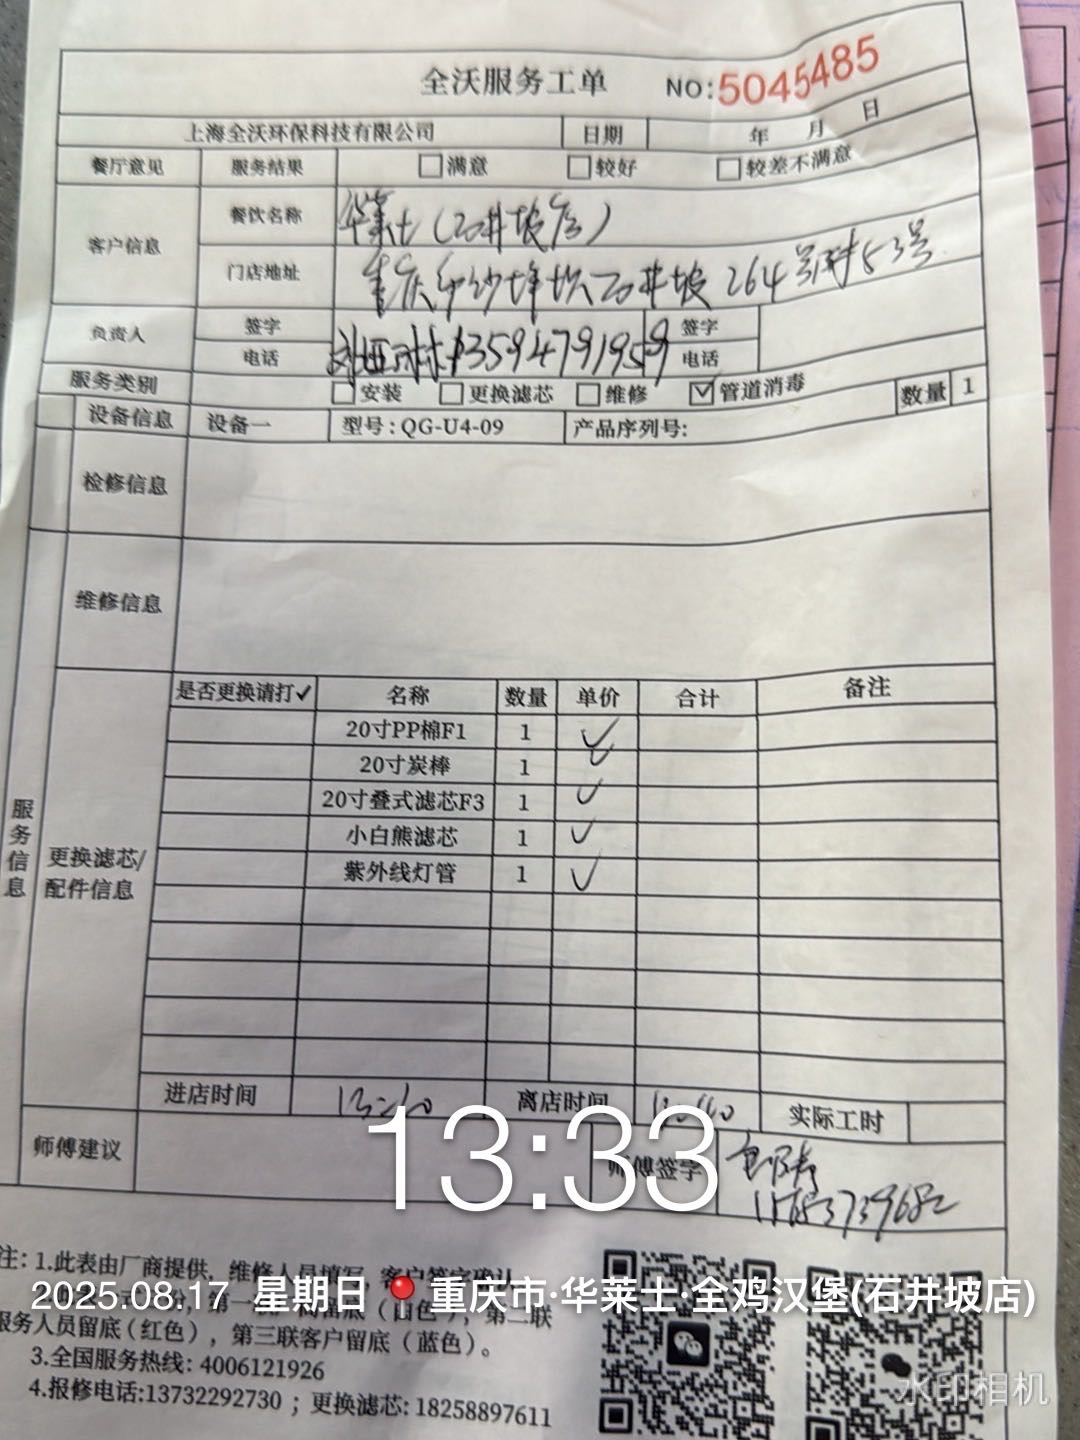 全沃服务工单 NO:5045485
上海全沃环保科技有限公司 日期 年 月 日
餐厅意见 服务结果 □满意 □较好 □较差不满意
客户信息 餐饮名称 华莱士(石井坡店)
门店地址 重庆市沙坪坝石井坡264号附53号
负责人 签字 签字
电话 13594791959 电话
服务类别 □安装 □更换滤芯 □维修 ☑管道消毒 数量 1
设备信息 设备一 型号:QG-U4-09 产品序列号:
检修信息
维修信息
服务信息
更换滤芯/
配件信息
是否更换请打✓ 名称 数量 单价 合计 备注
20寸PP棉F1 1 ✓
20寸炭棒 1 ✓
20寸叠式滤芯F3 1 ✓
小白熊滤芯 1 ✓
紫外线灯管 1 ✓
进店时间 离店时间 实际工时
师傅建议 师傅签字
13:33
注: 1.此表由厂商提供, 维修人员填写, 客户签字确认
2025.08.17 星期日 重庆市·华莱士·全鸡汉堡(石井坡店)
服务人员留底(红色), 第三联客户留底(蓝色)。
3.全国服务热线: 4006121926
4.报修电话:13732292730 ; 更换滤芯: 18258897611
水印相机